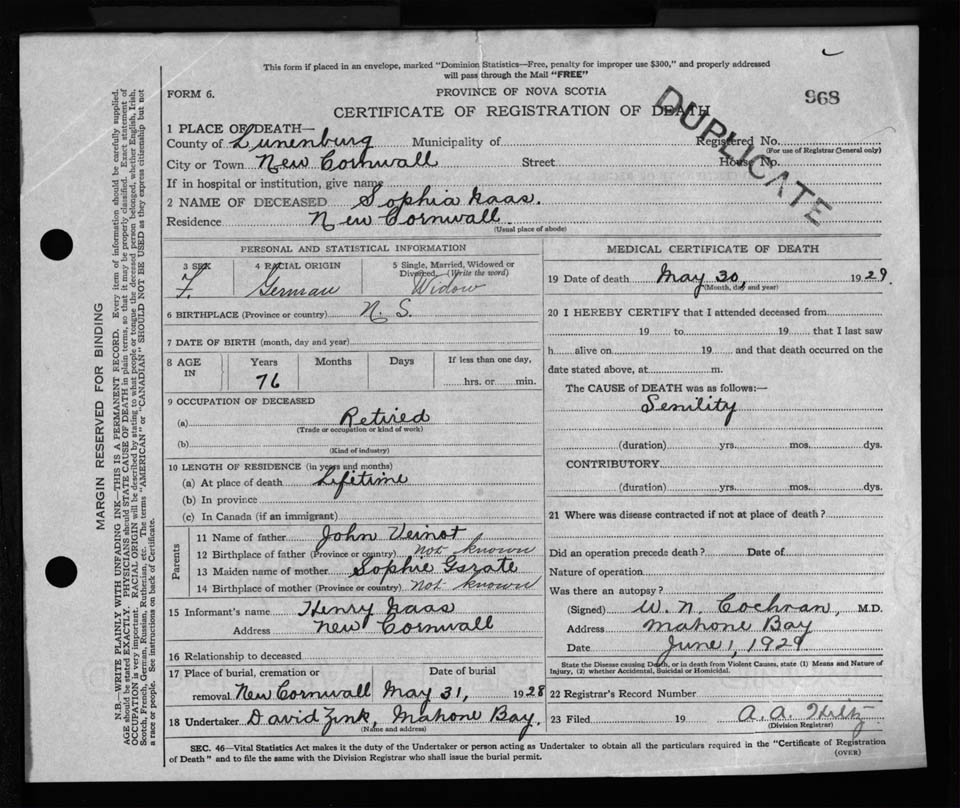 This form if placed in an envelope, marked "Dominion Statistics—Free, penalty for improper use $300," and properly addressed
will pass through the Mail "FREE"
FORM 6.
PROVINCE OF NOVA SCOTIA
968
CERTIFICATE OF REGISTRATION OF DEATH
DUPLICATE
1 PLACE OF DEATH—
County of Lunenburg Municipality of Registered No.
(For use of Registrar General only)
City or Town New Cornwall Street House No.
If in hospital or institution, give name
2 NAME OF DECEASED Sophia Haas.
Residence New Cornwall
(Usual place of abode)
PERSONAL AND STATISTICAL INFORMATION
3 SEX 4 RACIAL ORIGIN 5 Single, Married, Widowed or
Divorced, (Write the word)
F. German Widow
6 BIRTHPLACE (Province or country) N. S.
7 DATE OF BIRTH (month, day and year)
8 AGE IN Years Months Days If less than one day,
76 hrs. or min.
9 OCCUPATION OF DECEASED
(a) Retired
(Trade or occupation or kind of work)
(b)
(Kind of industry)
10 LENGTH OF RESIDENCE (in years and months)
(a) At place of death Lifetime
(b) In province
(c) In Canada (if an immigrant)
Parents
11 Name of father John Veinot
12 Birthplace of father (Province or country) not known
13 Maiden name of mother Sophie
14 Birthplace of mother (Province or country) not known
15 Informant's name Henry Haas
Address New Cornwall
16 Relationship to deceased
17 Place of burial, cremation or Date of burial
removal New Cornwall May 31, 1928
18 Undertaker David Zink, Mahone Bay.
(Name and address)
MEDICAL CERTIFICATE OF DEATH
19 Date of death May 30, 1929.
(Month, day and year)
20 I HEREBY CERTIFY that I attended deceased from
19 to 19 that I last saw
h alive on 19 and that death occurred on the
date stated above, at m.
The CAUSE of DEATH was as follows:—
Senility
(duration) yrs. mos. dys.
CONTRIBUTORY
(duration) yrs. mos. dys.
21 Where was disease contracted if not at place of death?
Did an operation precede death? Date of
Nature of operation
Was there an autopsy?
(Signed) W. N. Cochran, M.D.
Address Mahone Bay
Date June 1, 1929
State the Disease causing Death, or in death from Violent Causes, state (1) Means and Nature of
Injury, (2) whether Accidental, Suicidal or Homicidal.
22 Registrar's Record Number
23 Filed 19 A. A. Hiltz
(Division Registrar)
SEC. 46—Vital Statistics Act makes it the duty of the Undertaker or person acting as Undertaker to obtain all the particulars required in the "Certificate of Registration
of Death" and to file the same with the Division Registrar who shall issue the burial permit.
(OVER)
MARGIN RESERVED FOR BINDING
N.B.—WRITE PLAINLY WITH UNFADING INK—THIS IS A PERMANENT RECORD. Every item of information should be carefully supplied.
AGE should be stated EXACTLY. PHYSICIANS should STATE CAUSE OF DEATH in plain terms, so that it may be properly classified. Exact statement of
OCCUPATION is very important. RACIAL ORIGIN will be described by stating to what people or tongue the deceased person belonged, whether English, Irish,
Scotch, French, German, Russian, Ruthenian, etc. The terms "AMERICAN" or "CANADIAN" SHOULD NOT BE USED as they express citizenship but not
a race or people. See instructions on back of Certificate.